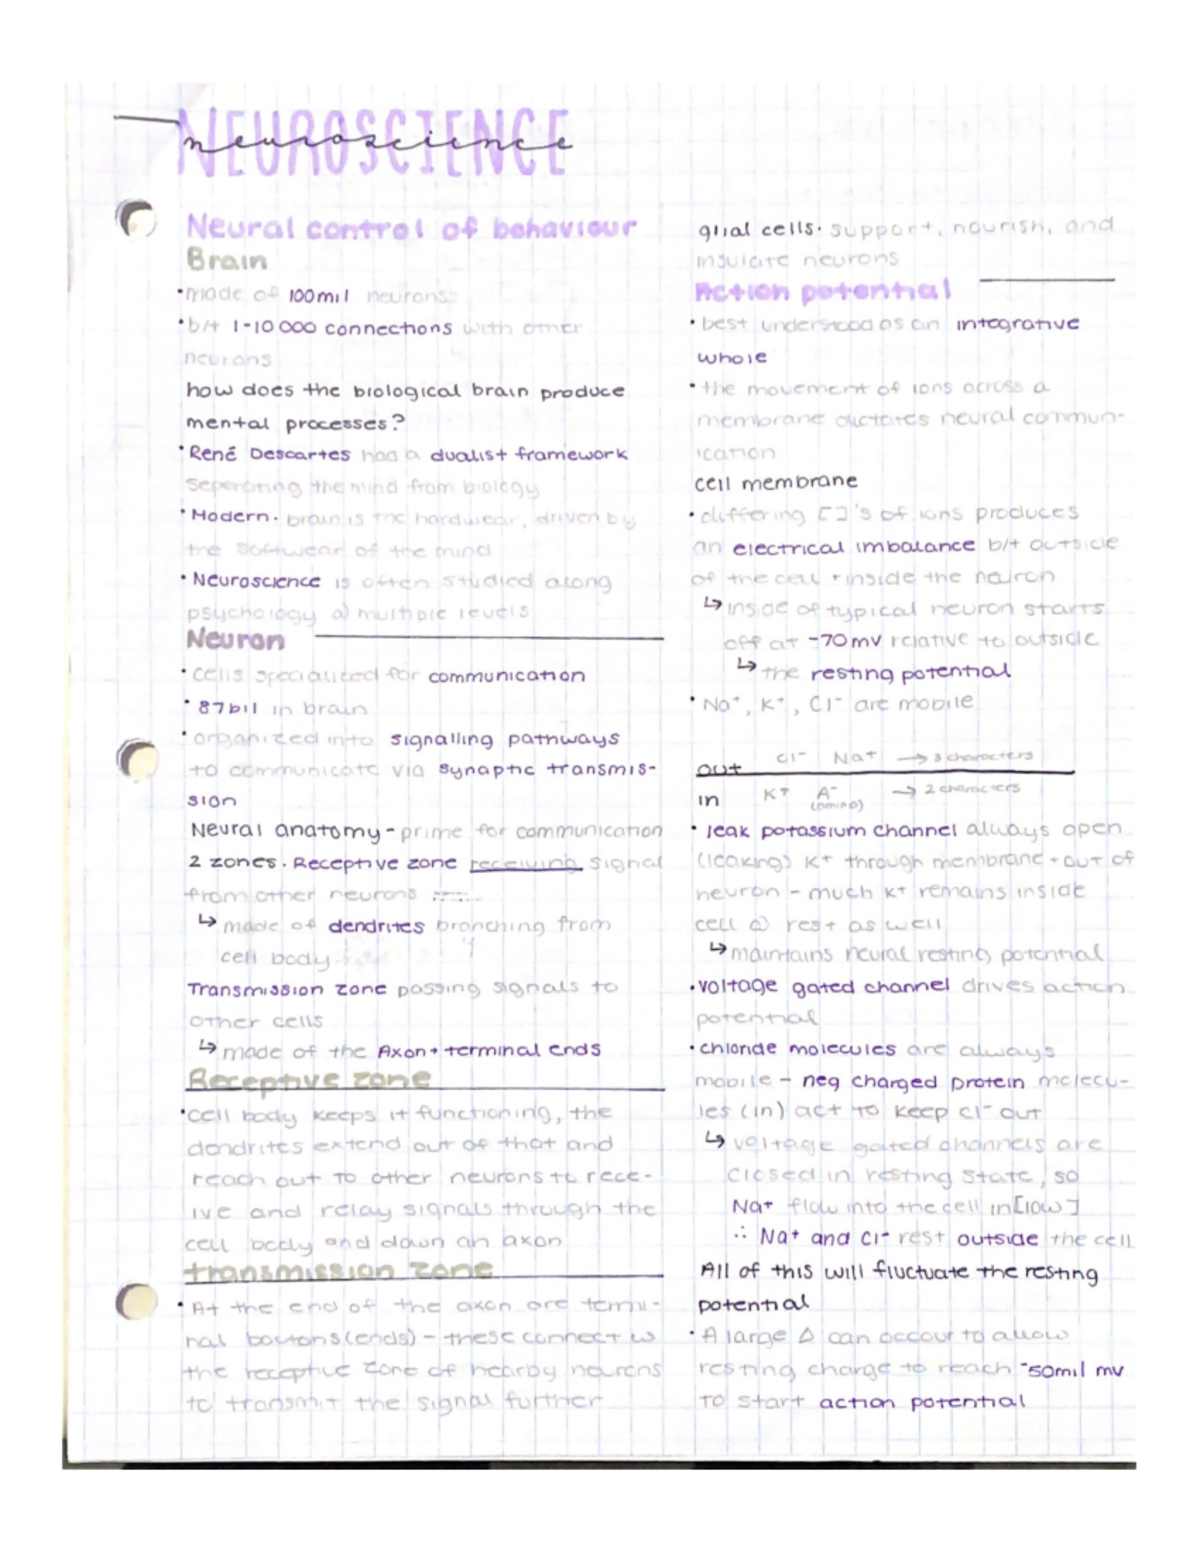 NEUROSCIENCE
neuroscience
Neural control of behaviour
Brain
•made of 100mil neurons
•b/t 1-10 000 connections with other
neurons
how does the biological brain produce
mental processes?
•René Descartes had a dualist framework
seperating the mind from biology
•Modern. brain is the hardwear, driven by
the softwear of the mind
•Neuroscience is often studied along
psychology @ multiple levels
Neuron
•cells specialized for communication
•87bil in brain
•organized into signalling pathways
to communicate via synaptic transmis-
sion
Neural anatomy - prime for communication
2 zones. Receptive zone receiving signal
from other neurons
↳ made of dendrites branching from
cell body
Transmission zone passing signals to
other cells
↳ made of the Axon + terminal ends
Receptive zone
•cell body keeps it functioning, the
dendrites extend out of that and
reach out to other neurons to rece-
ive and relay signals through the
cell body and down an axon
transmission zone
•At the end of the axon are termi-
nal boutons (ends) - these connect w
the receptive zone of nearby neurons
to transmit the signal further
glial cells. support, nourish, and
insulate neurons
Action potential
•best understood as an integrative
whole
•the movement of ions across a
membrane dictates neural commun-
ication
cell membrane
•differing [ ]'s of ions produces
an electrical imbalance b/t outside
of the cell + inside the neuron
↳ inside of typical neuron starts
off at -70mv relative to outside
↳ the resting potential
•Na⁺, K⁺, Cl⁻ are mobile
out Cl⁻ Na⁺ → 3 characters
in K⁺ A⁻ (amino) → 2 characters
•leak potassium channel always open
(leaking) K⁺ through membrane + out of
neuron - much K⁺ remains inside
cell @ rest as well
↳ maintains neural resting potential
•voltage gated channel drives action
potential
•chloride molecules are always
mobile - neg charged protein molecu-
les (in) act to keep Cl⁻ out
↳ voltage gated channels are
closed in resting state, so
Na⁺ flow into the cell in [low]
∴ Na⁺ and Cl⁻ rest outside the cell
All of this will fluctuate the resting
potential
•A large Δ can occour to allow
resting charge to reach -50mil mv
to start action potential